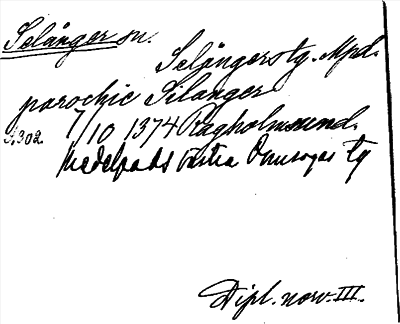 Selånger sn.
Selångers tg. Mpd.
parochie Silanger
s. 302. 7/10 1374 Ragholmsund.
Medelpads Västra Domsagas tg
Dipl. norv. III.